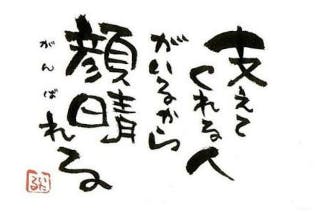 支えて
くれる人
がいるから
顔晴れる
がんばれ